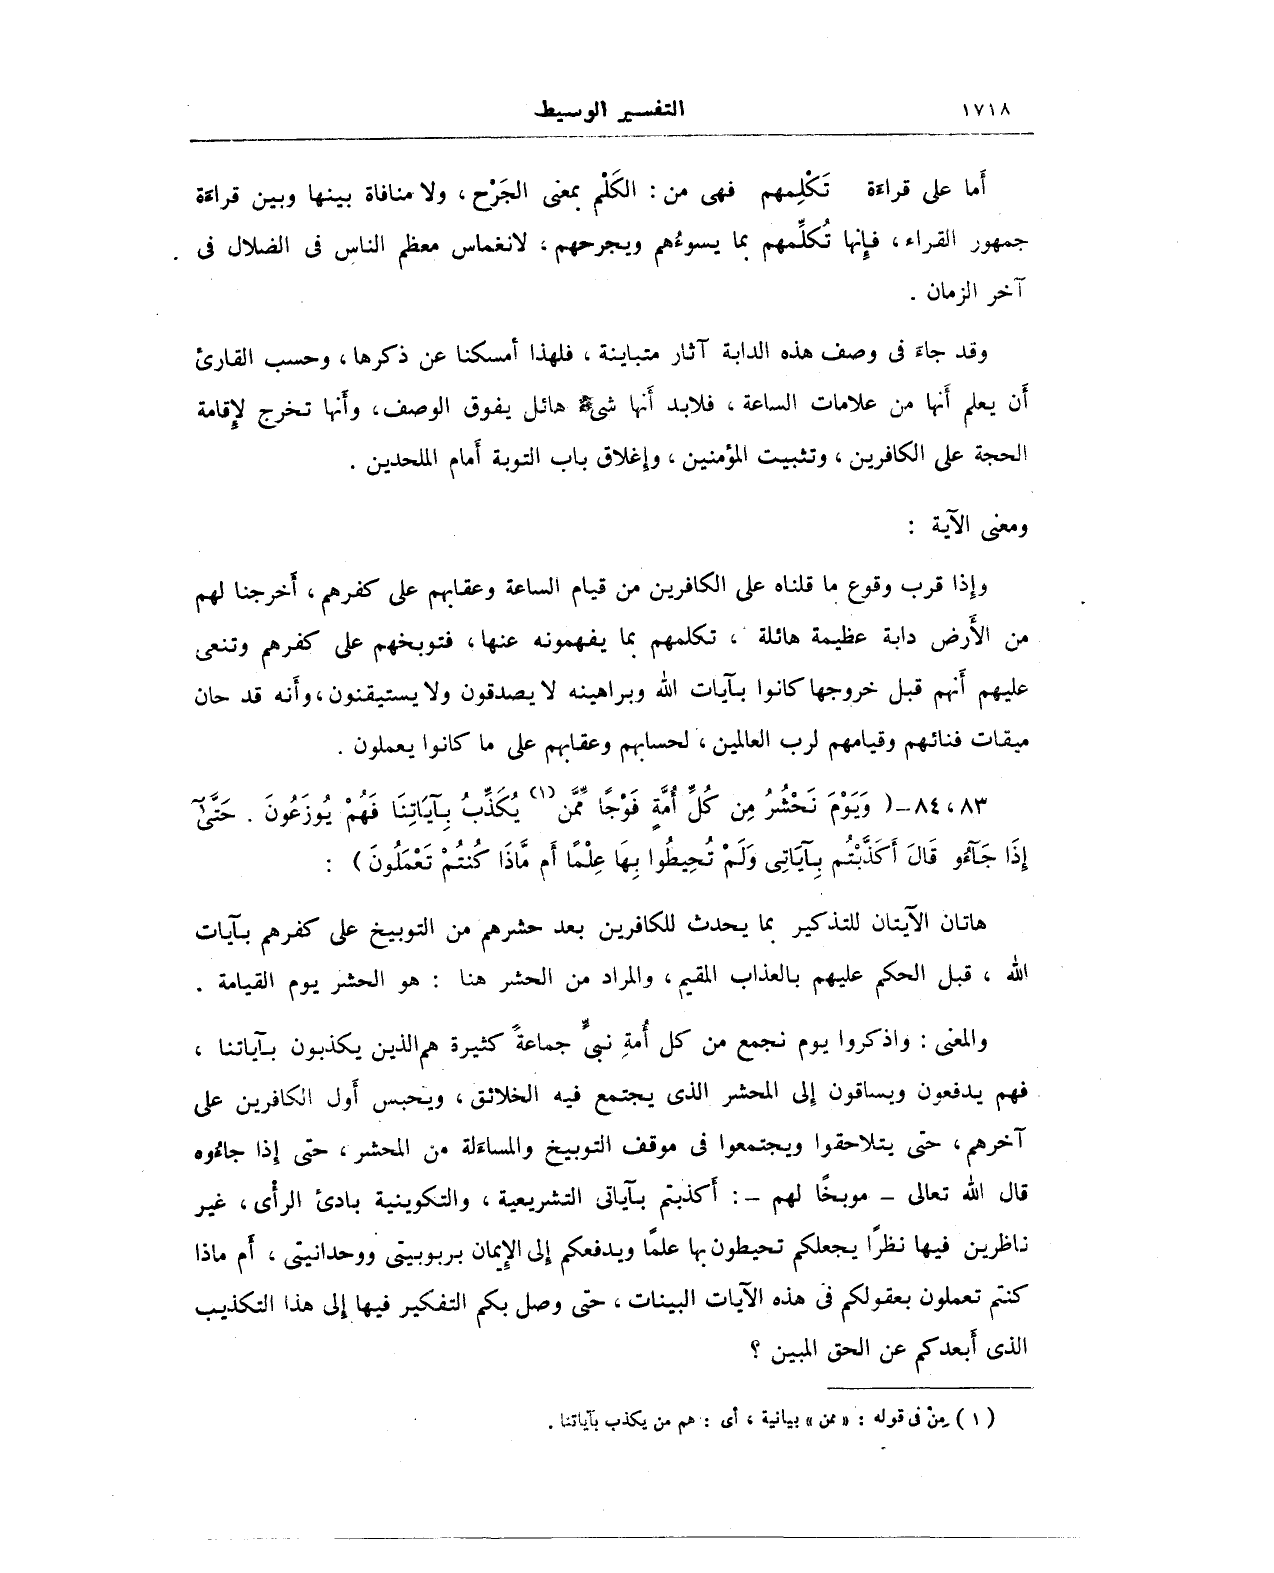 ١٧١٨
التفسير الوسيط
أما على قراءة تَكْلِمهم فهى من : الكَلْم بمعنى الجَرْح ، ولا منافاة بينها وبين قراءة
جمهور القراء ، فإِنها تُكلِّمهم بما يسوءُهم ويجرحهم ، لانغماس معظم الناس فى الضلال فى
آخر الزمان .
وقد جاءَ فى وصف هذه الدابة آثار متباينة ، فلهذا أمسكنا عن ذكرها ، وحسب القارئ
أَن يعلم أَنها من علامات الساعة ، فلابد أَنها شىء هائل يفوق الوصف ، وأَنها تخرج لإِقامة
الحجة على الكافرين ، وتثبيت المؤمنين ، وإغلاق باب التوبة أَمام الملحدين .
ومعنى الآية :
وإِذا قرب وقوع ما قلناه على الكافرين من قيام الساعة وعقابهم على كفرهم ، أَخرجنا لهم
من الأَرض دابة عظيمة هائلة ، تكلمهم بما يفهمونه عنها ، فتوبخهم على كفرهم وتنعى
عليهم أَنهم قبل خروجها كانوا بآيات الله وبراهينه لا يصدقون ولا يستيقنون ، وأَنه قد حان
ميقات فنائهم وقيامهم لرب العالمين ، لحسابهم وعقابهم على ما كانوا يعملون .
٨٣ ، ٨٤ – ( وَيَوْمَ نَحْشُرُ مِن كُلِّ أُمَّةٍ فَوْجًا مِّمَّن (١) يُكَذِّبُ بِآيَاتِنَا فَهُمْ يُوزَعُونَ . حَتَّىٰٓ
إِذَا جَآءُو قَالَ أَكَذَّبْتُم بِآيَاتِى وَلَمْ تُحِيطُوا بِهَا عِلْمًا أَم مَّاذَا كُنتُمْ تَعْمَلُونَ ) :
هاتان الآيتان للتذكير بما يحدث للكافرين بعد حشرهم من التوبيخ على كفرهم بآيات
الله ، قبل الحكم عليهم بالعذاب المقيم ، والمراد من الحشر هنا : هو الحشر يوم القيامة .
والمعنى : واذكروا يوم نجمع من كل أُمةِ نبىٍّ جماعةً كثيرة هم الذين يكذبون بآياتنا ،
فهم يدفعون ويساقون إِلى المحشر الذى يجتمع فيه الخلائق ، ويحبس أَول الكافرين على
آخرهم ، حتى يتلاحقوا ويجتمعوا فى موقف التوبيخ والمساءَلة من المحشر ، حتى إِذا جاءُوه
قال الله تعالى – موبخًا لهم – : أَكذبتم بآياتى التشريعية ، والتكوينية بادئ الرأْى ، غير
ناظرين فيها نظرًا يجعلكم تحيطون بها علمًا ويدفعكم إلى الإِيمان بربوبيتى ووحدانيتى ، أَم ماذا
كنتم تعملون بعقولكم فى هذه الآيات البينات ، حتى وصل بكم التفكير فيها إلى هذا التكذيب
الذى أَبعدكم عن الحق المبين ؟
( ١ ) مِنْ فى قوله : « ممن » بيانية ، أى : هم من يكذب بآياتنا .